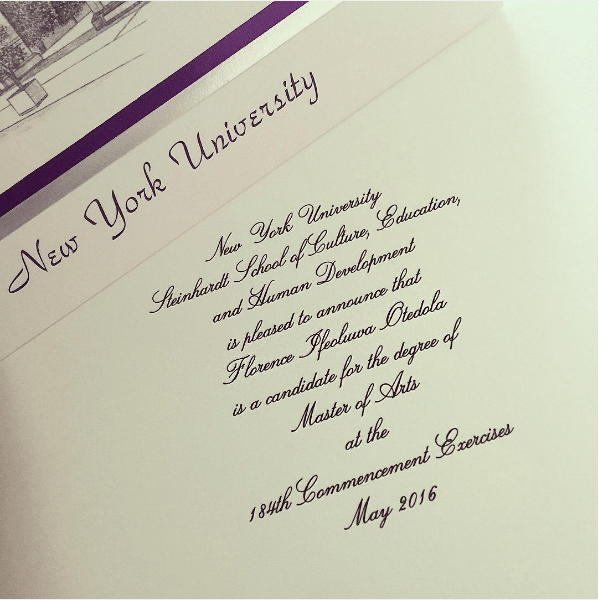 New York University
New York University
Steinhardt School of Culture, Education,
and Human Development
is pleased to announce that
Florence Ifeoluwa Otedola
is a candidate for the degree of
Master of Arts
at the
184th Commencement Exercises
May 2016